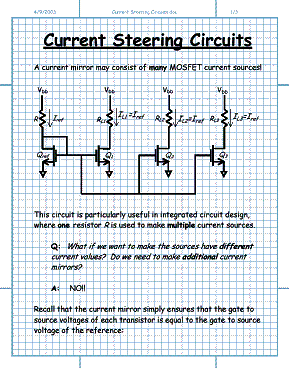 4/9/2003 Current Steering Circuits.doc 1/3
Current Steering Circuits
A current mirror may consist of many MOSFET current sources!
V_DD V_DD V_DD V_DD
R I_ref R_L1 I_L1=I_ref R_L2 I_L2=I_ref R_L3 I_L3=I_ref
Q_ref Q_1 Q_2 Q_3
This circuit is particularly useful in integrated circuit design,
where one resistor R is used to make multiple current sources.
Q: What if we want to make the sources have different
current values? Do we need to make additional current
mirrors?
A: NO!!
Recall that the current mirror simply ensures that the gate to
source voltages of each transistor is equal to the gate to source
voltage of the reference: